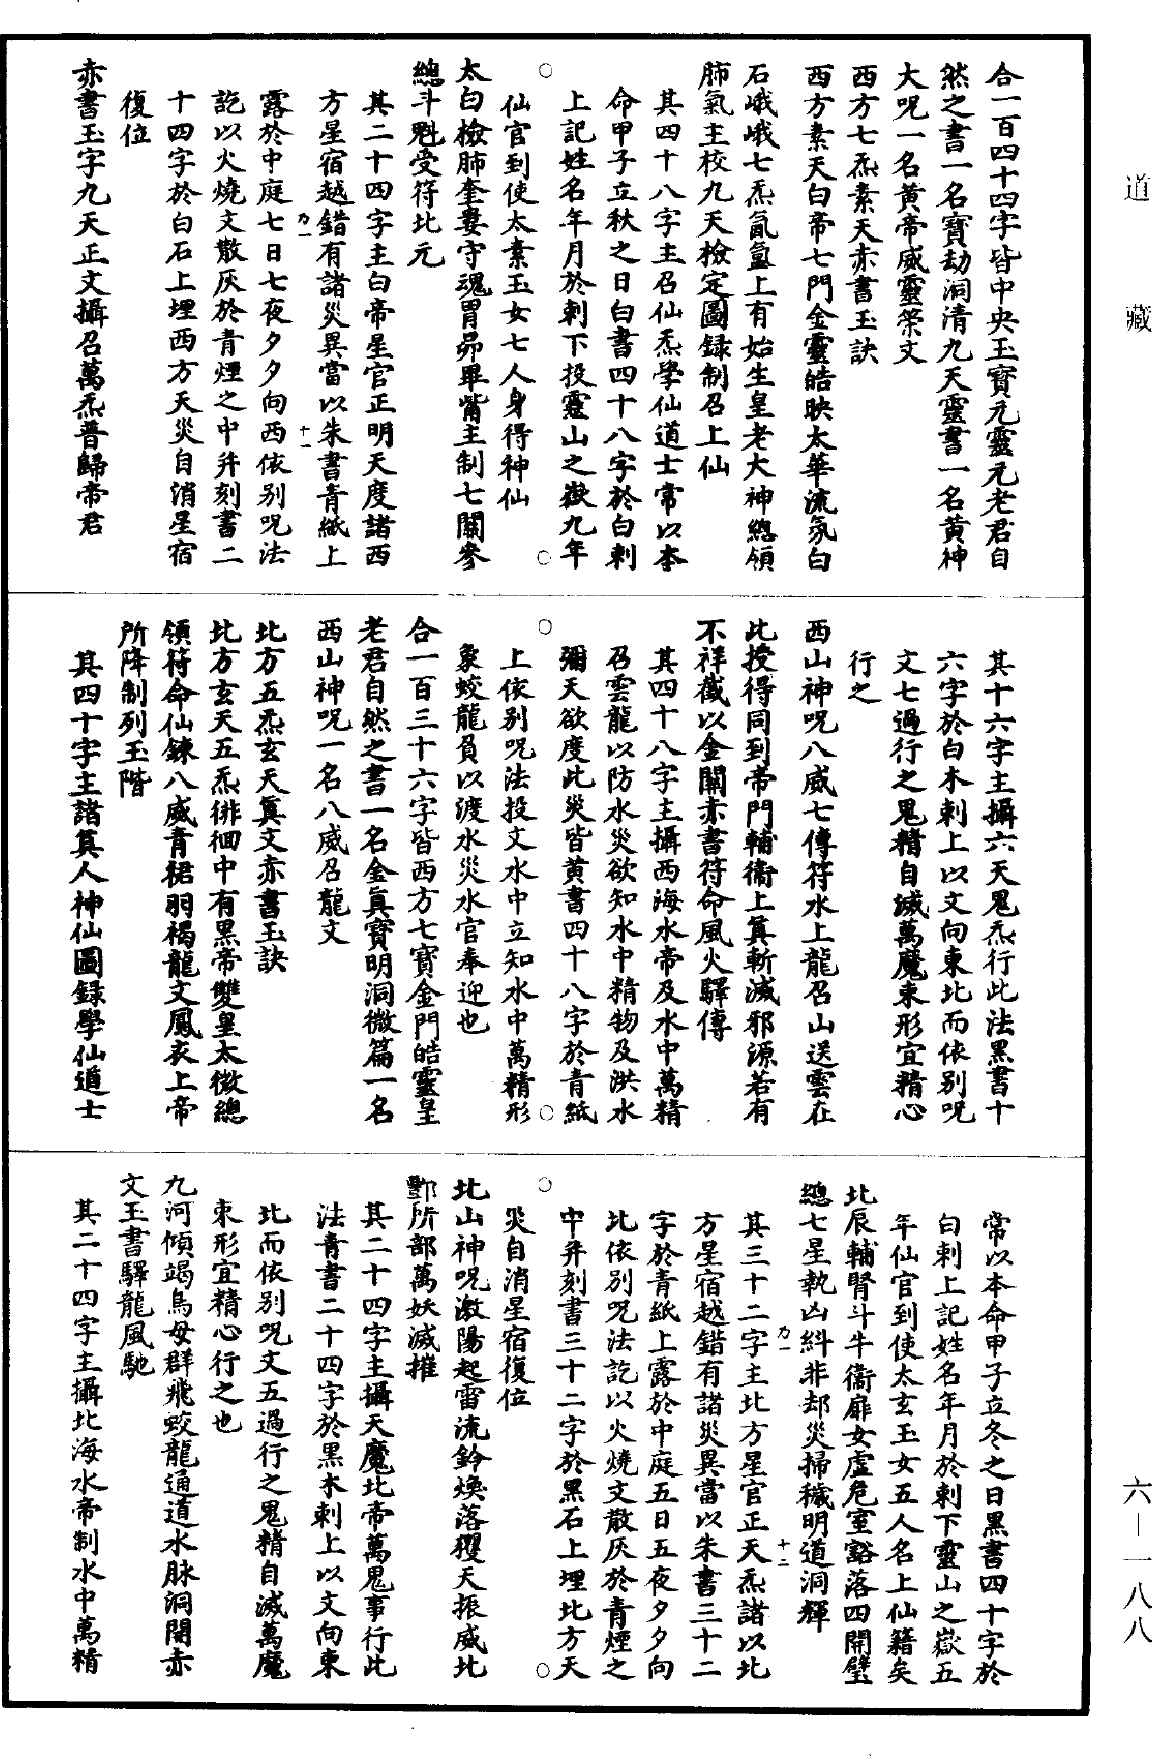 道藏
六—一八八
合一百四十四字皆中央玉寶元靈元老君自
然之書一名寶劫洞清九天靈書一名黃神
大呪一名黃帝威靈策文
西方七炁素天赤書玉訣
西方素天白帝七門金靈皓映太華流氛白
石峨峨七炁氤氳上有始生皇老大神總領
肺氣主校九天檢定圖録制召上仙
其四十八字主召仙炁學仙道士常以本
命甲子立秋之日白書四十八字於白刺
上記姓名年月於刺下投靈山之嶽九年
仙官到使太素玉女七人身得神仙
太白檢肺奎婁守魂胃昴畢觜主制七關參
總斗魁受符北元
其二十四字主白帝星官正明天度諸西
方星宿越錯有諸災異當以朱書青紙上
露於中庭七日七夜夕夕向西依别呪法
訖以火燒文散灰於青煙之中并刻書二
十四字於白石上埋西方天災自消星宿
復位
赤書玉字九天正文攝召萬炁普歸帝君
力一
十一
其十六字主攝六天鬼炁行此法黑書十
六字於白木刺上以文向東北而依别呪
文七過行之鬼精自滅萬魔束形宜精心
行之
西山神呪八威七傳符水上龍召山送雲在
此授得同到帝門輔衞上真斬滅邪源若有
不祥截以金關赤書符命風火驛傳
其四十八字主攝西海水帝及水中萬精
召雲龍以防水災欲知水中精物及洪水
彌天欲度此災皆黃書四十八字於青紙
上依别呪法投文水中立知水中萬精形
象蛟龍負以渡水災水官奉迎也
合一百三十六字皆西方七寶金門皓靈皇
老君自然之書一名金真寶明洞微篇一名
西山神呪一名八威召龍文
北方五炁玄天真文赤書玉訣
北方玄天五炁徘徊中有黑帝雙皇太微總
領符命仙錬八威青裙羽褐龍文鳳衣上帝
所降制列玉階
其四十字主諸真人神仙圖録學仙道士
常以本命甲子立冬之日黑書四十字於
白刺上記姓名年月於刺下靈山之嶽五
年仙官到使太玄玉女五人名上仙籍矣
北辰輔腎斗牛衞扉女虚危室豁落四開壁
總七星執凶糾非却災掃穢明道洞輝
其三十二字主北方星官正天炁諸以北
方星宿越錯有諸災異當以朱書三十二
字於青紙上露於中庭五日五夜夕夕向
北依别呪法訖以火燒文散灰於青煙之
中并刻書三十二字於黑石上埋北方天
災自消星宿復位
北山神呪激陽起雷流鈴煥落玃天振威北
酆所部萬妖滅摧
其二十四字主攝天魔北帝萬鬼事行此
法青書二十四字於黑木刺上以文向東
北而依别呪文五過行之鬼精自滅萬魔
束形宜精心行之也
九河傾竭鳥母群飛蛟龍通道水脉洞開赤
文玉書驛龍風馳
其二十四字主攝北海水帝制水中萬精
力一
十二